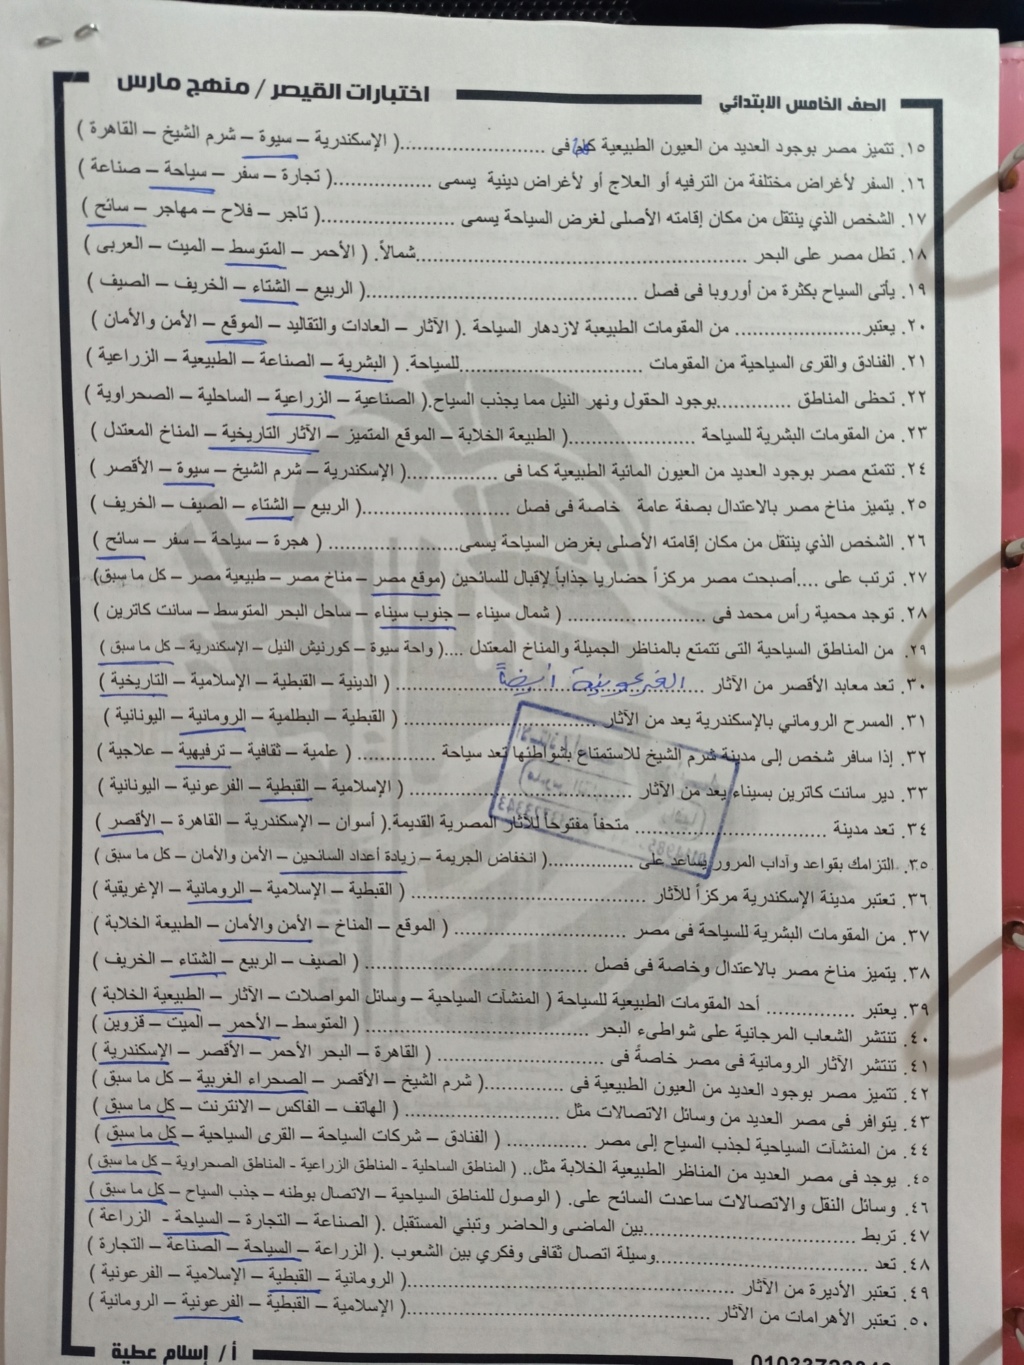 الصف الخامس الابتدائي
اختبارات القيصر / منهج مارس
١٥. تتميز مصر بوجود العديد من العيون الطبيعية كما فى ......................( الإسكندرية – سيوة – شرم الشيخ – القاهرة )
١٦. السفر لأغراض مختلفة من الترفيه أو العلاج أو لأغراض دينية يسمى ..............( تجارة – سفر – سياحة – صناعة )
١٧. الشخص الذي ينتقل من مكان إقامته الأصلى لغرض السياحة يسمى ..................( تاجر – فلاح – مهاجر – سائح )
١٨. تطل مصر على البحر ..........................................شمالاً. ( الأحمر – المتوسط – الميت – العربى )
١٩. يأتى السياح بكثرة من أوروبا فى فصل ..................................( الربيع – الشتاء – الخريف – الصيف )
٢٠. يعتبر................. من المقومات الطبيعية لازدهار السياحة .( الآثار – العادات والتقاليد – الموقع – الأمن والأمان )
٢١. الفنادق والقرى السياحية من المقومات ..........................للسياحة. ( البشرية – الصناعة – الطبيعية – الزراعية )
٢٢. تحظى المناطق ............بوجود الحقول ونهر النيل مما يجذب السياح.( الصناعية – الزراعية – الساحلية – الصحراوية )
٢٣. من المقومات البشرية للسياحة .................( الطبيعة الخلابة – الموقع المتميز – الآثار التاريخية – المناخ المعتدل )
٢٤. تتمتع مصر بوجود العديد من العيون المائية الطبيعية كما فى ..............( الإسكندرية – شرم الشيخ – سيوة – الأقصر )
٢٥. يتميز مناخ مصر بالاعتدال بصفة عامة خاصة فى فصل ......................( الربيع – الشتاء – الصيف – الخريف )
٢٦. الشخص الذي ينتقل من مكان إقامته الأصلى بغرض السياحة يسمى.................. ( هجرة – سياحة – سفر – سائح )
٢٧. ترتب على ....أصبحت مصر مركزاً حضاريا جذاباً لإقبال للسائحين (موقع مصر – مناخ مصر – طبيعية مصر – كل ما سبق)
٢٨. توجد محمية رأس محمد فى ..................... ( شمال سيناء – جنوب سيناء – ساحل البحر المتوسط – سانت كاترين )
٢٩. من المناطق السياحية التى تتمتع بالمناظر الجميلة والمناخ المعتدل ....( واحة سيوة – كورنيش النيل – الإسكندرية – كل ما سبق )
٣٠. تعد معابد الأقصر من الآثار ........الفرعونية أيضاً........ ( الدينية – القبطية – الإسلامية – التاريخية )
٣١. المسرح الروماني بالإسكندرية يعد من الآثار .......................... ( القبطية – البطلمية – الرومانية – اليونانية )
٣٢. إذا سافر شخص إلى مدينة شرم الشيخ للاستمتاع بشواطئها تعد سياحة ............ ( علمية – ثقافية – ترفيهية – علاجية )
٣٣. دير سانت كاترين بسيناء يعد من الآثار ............................ ( الإسلامية – القبطية – الفرعونية – اليونانية )
٣٤. تعد مدينة ........................ متحفاً مفتوحاً للآثار المصرية القديمة.( أسوان – الإسكندرية – القاهرة – الأقصر )
٣٥. التزامك بقواعد وآداب المرور يساعد على ............( انخفاض الجريمة – زيادة أعداد السائحين – الأمن والأمان – كل ما سبق )
٣٦. تعتبر مدينة الإسكندرية مركزاً للآثار ............................... ( القبطية – الإسلامية – الرومانية – الإغريقية )
٣٧. من المقومات البشرية للسياحة فى مصر ...................... ( الموقع – المناخ – الأمن والأمان – الطبيعة الخلابة )
٣٨. يتميز مناخ مصر بالاعتدال وخاصة فى فصل ............................ ( الصيف – الربيع – الشتاء – الخريف )
٣٩. يعتبر ............... أحد المقومات الطبيعية للسياحة ( المنشآت السياحية – وسائل المواصلات – الآثار – الطبيعية الخلابة )
٤٠. تنتشر الشعاب المرجانية على شواطىء البحر ............................. ( المتوسط – الأحمر – الميت – قزوين )
٤١. تنتشر الآثار الرومانية فى مصر خاصةً فى ........................ ( القاهرة – البحر الأحمر – الأقصر – الإسكندرية )
٤٢. تتميز مصر بوجود العديد من العيون الطبيعية فى ..............( شرم الشيخ – الأقصر – الصحراء الغربية – كل ما سبق )
٤٣. يتوافر فى مصر العديد من وسائل الاتصالات مثل ...................... ( الهاتف – الفاكس – الانترنت – كل ما سبق )
٤٤. من المنشآت السياحية لجذب السياح إلى مصر ............ ( الفنادق – شركات السياحة – القرى السياحية – كل ما سبق )
٤٥. يوجد فى مصر العديد من المناظر الطبيعية الخلابة مثل.. ( المناطق الساحلية - المناطق الزراعية - المناطق الصحراوية – كل ما سبق )
٤٦. وسائل النقل والاتصالات ساعدت السائح على. ( الوصول للمناطق السياحية – الاتصال بوطنه – جذب السياح – كل ما سبق )
٤٧. تربط ..............................بين الماضى والحاضر وتبني المستقبل .( الصناعة – التجارة – السياحة - الزراعة )
٤٨. تعد ................................وسيلة اتصال ثقافى وفكري بين الشعوب .( الزراعة – السياحة – الصناعة – التجارة )
٤٩. تعتبر الأديرة من الآثار ..........................................( الرومانية – القبطية – الإسلامية – الفرعونية )
٥٠. تعتبر الأهرامات من الآثار .......................................( الإسلامية – القبطية – الفرعونية – الرومانية )
أ / إسلام عطية